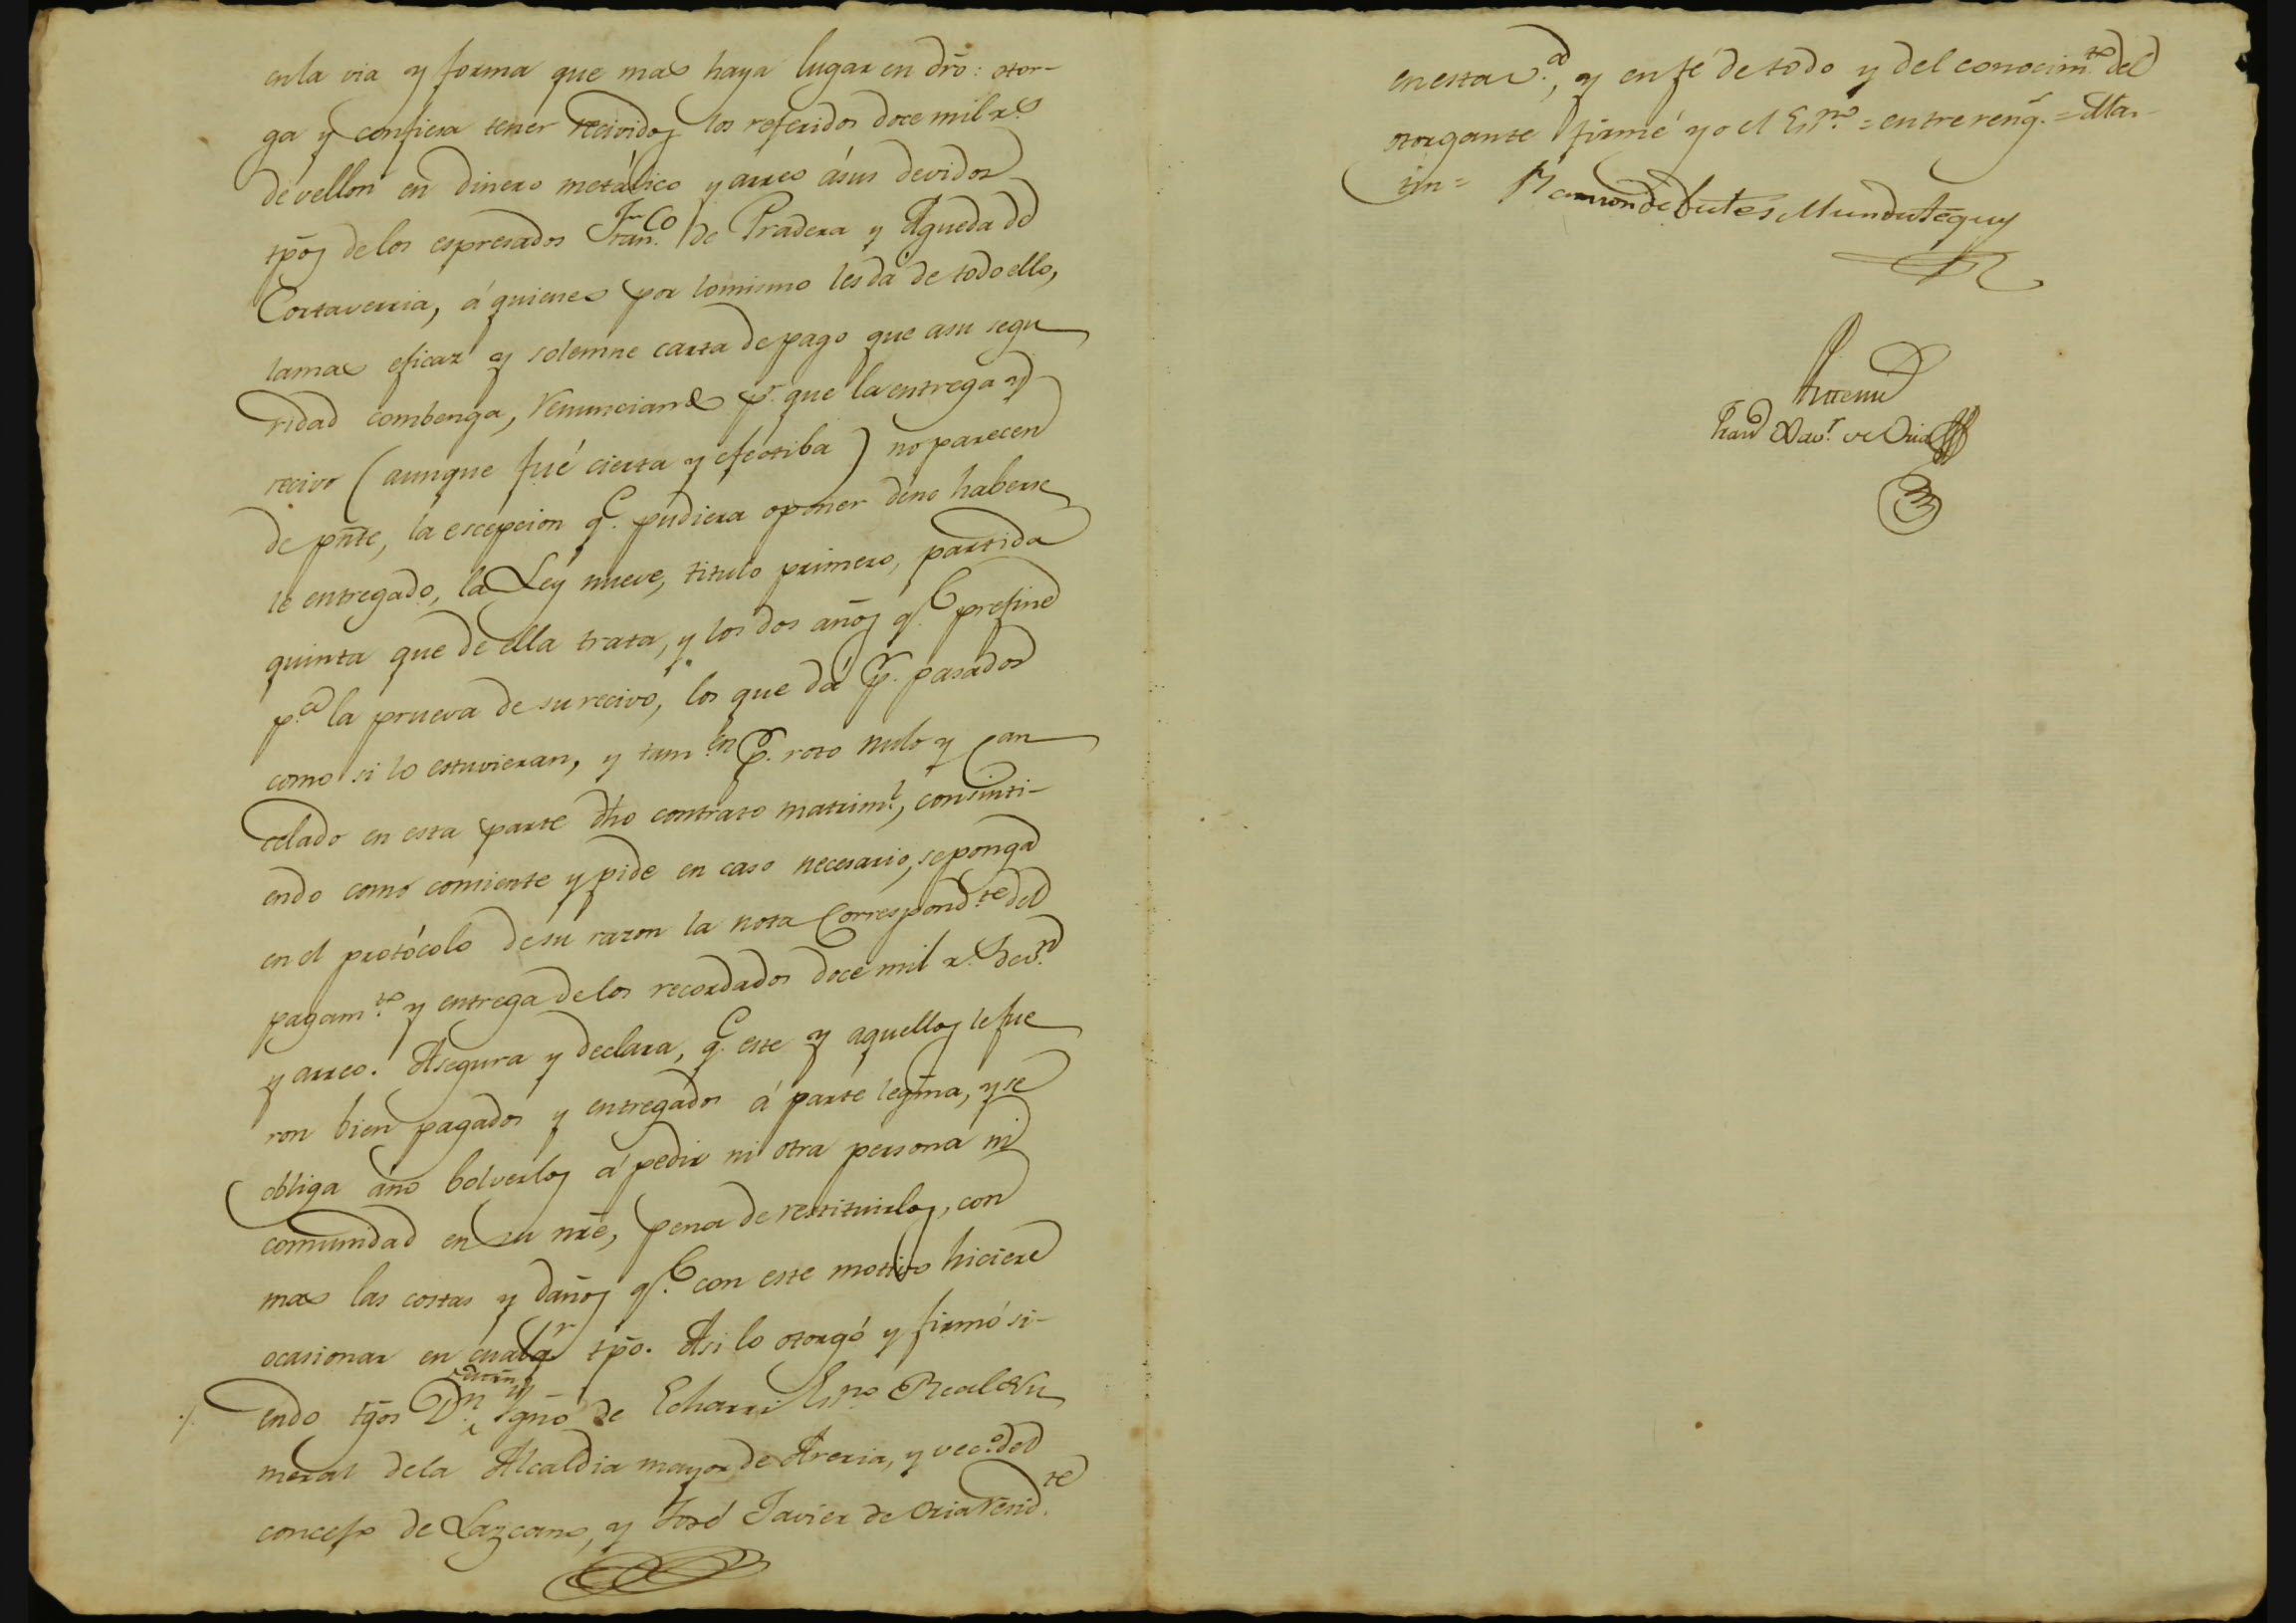 en la via y forma que mas haya lugar en dr̃o: otor-
ga y confiesa tener recividos los referidos doce mil r.s
de vellon en dinero metálico y arreo á sus devidos
tp̃os de los espresados Fran.co de Pradera y Agueda de
Cortaverria, á quienes por lo mismo les da de todo ello,
la mas eficaz y solemne carta de pago que a su segu
ridad combenga, renunciando p.r que la entrega y
recivo (aunque fué cierta y efectiba) no parecen
de pñte, la escepcion q.e pudiera oponer de no haberse
le entregado, la Ley nueve, titulo primero, partida
quinta que de ella trata, y los dos años q.e prefine
p.a la prueva de su recivo, los que dá p.r pasados
como si lo estuvieran, y tam.en p.r roto nulo y can
celado en esta parte dho contrato matrim.l, consinti-
endo como consiente y pide en caso necesario, se ponga
en el protócolo de su razon la nota correspond.te del
pagam.to y entrega de los recordados doce mil r.s de v.n
y arreo. Asegura y declara, q.e este y aquellos le fue
ron bien pagados y entregados á parte legma, y se
obliga á no bolverlos á pedir ni otra persona ni
comunidad en su nr̃e, pena de restituirlos, con
mas las costas y daños q.e con este motivo hiciere
ocasionar en cualq.r tp̃o. Asi lo otorgó y firmó si-
endo tg̃os D.n Martin Ygnõ de Echarri Es.no Real Nu
meral de la Alcaldia mayor de Areria, y vec.o del
concejo de Lazcano, y José Javier de Oria resid.te
en esta v.a, y en fé de todo y del conocim.to del
otorgante firmé yo el Es.no = entre reng.s = Mar-
tin = Ramon de Mundutéguy
Antemi
Fran.co Xav.r de Oria